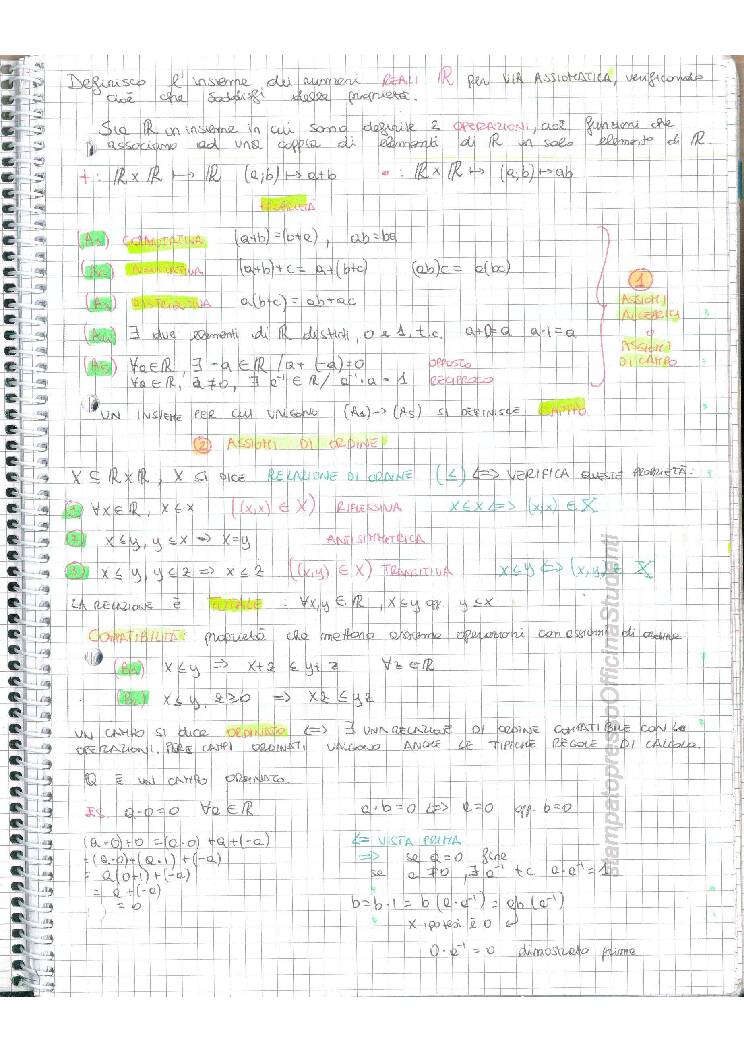 Definisco l'insieme dei numeri REALI ℝ per VIA ASSIOMATICA, verificando
cioè che soddisfi delle proprietà.
Sia ℝ un insieme in cui sono definite 2 OPERAZIONI, cioè funzioni che
associano ad una coppia di elementi di ℝ un solo elemento di ℝ.
+ : ℝ × ℝ ↦ ℝ (a;b) ↦ a+b • : ℝ × ℝ ↦ (a;b) ↦ ab
PROPRIETÀ
(A1) COMMUTATIVA (a+b)=(b+a), ab=ba
(A2) ASSOCIATIVA (a+b)+c = a+(b+c) (ab)c = a(bc)
(A3) DISTRIBUTIVA a(b+c)=ab+ac
(A4) ∃ due elementi di ℝ distinti, 0 e 1, t.c. a+0=a a·1=a
(A5) ∀a∈ℝ, ∃ -a ∈ ℝ / a+(-a)=0 OPPOSTO
∀a∈ℝ, a≠0, ∃ a⁻¹ ∈ ℝ / a⁻¹·a = 1 RECIPROCO
1
ASSIOMI
ALGEBRICI
o
ASSIOMI
DI CAMPO
UN INSIEME PER CUI VALGONO (A1)->(A5) SI DEFINISCE CAMPO
2 ASSIOMI DI ORDINE
X ⊆ ℝ×ℝ, X SI DICE RELAZIONE DI ORDINE (≤) <=> VERIFICA QUESTE PROPRIETÀ:
1 ∀x∈ℝ, x≤x ((x,x) ∈ X) RIFLESSIVA x≤x <=> (x,x) ∈ X
2 x≤y, y≤x => x=y ANTISIMMETRICA
3 x≤y, y≤z => x≤z ((x,y) ∈ X) TRANSITIVA x≤y <=> (x,y) ∈ X
LA RELAZIONE È TOTALE : ∀x,y ∈ ℝ, x≤y opp. y≤x
COMPATIBILITÀ: proprietà che mettono assieme operazioni con assiomi di ordine
(B1) x≤y => x+z ≤ y+z ∀z∈ℝ
(B2) x≤y, z≥0 => xz ≤ yz
UN CAMPO SI DICE ORDINATO <=> ∃ UNA RELAZIONE DI ORDINE COMPATIBILE CON LE
OPERAZIONI. PER I CAMPI ORDINATI VALGONO ANCHE LE TIPICHE REGOLE DI CALCOLO.
ℚ È UN CAMPO ORDINATO.
ES. a·0=0 ∀a∈ℝ
(a·0)+0 = (a·0)+a+(-a)
=(a·0)+(a·1)+(-a)
= a(0+1)+(-a)
= a+(-a)
= 0
a·b=0 <=> a=0 opp. b=0
<= VISTA PRIMA
=> se a=0 fine
se a≠0, ∃ a⁻¹ t.c. a·a⁻¹=1
b=b·1 = b(a·a⁻¹) = ab(a⁻¹)
x ipotesi è 0
0·a⁻¹=0 dimostrato prima
Stampato presso OfficinaStudenti